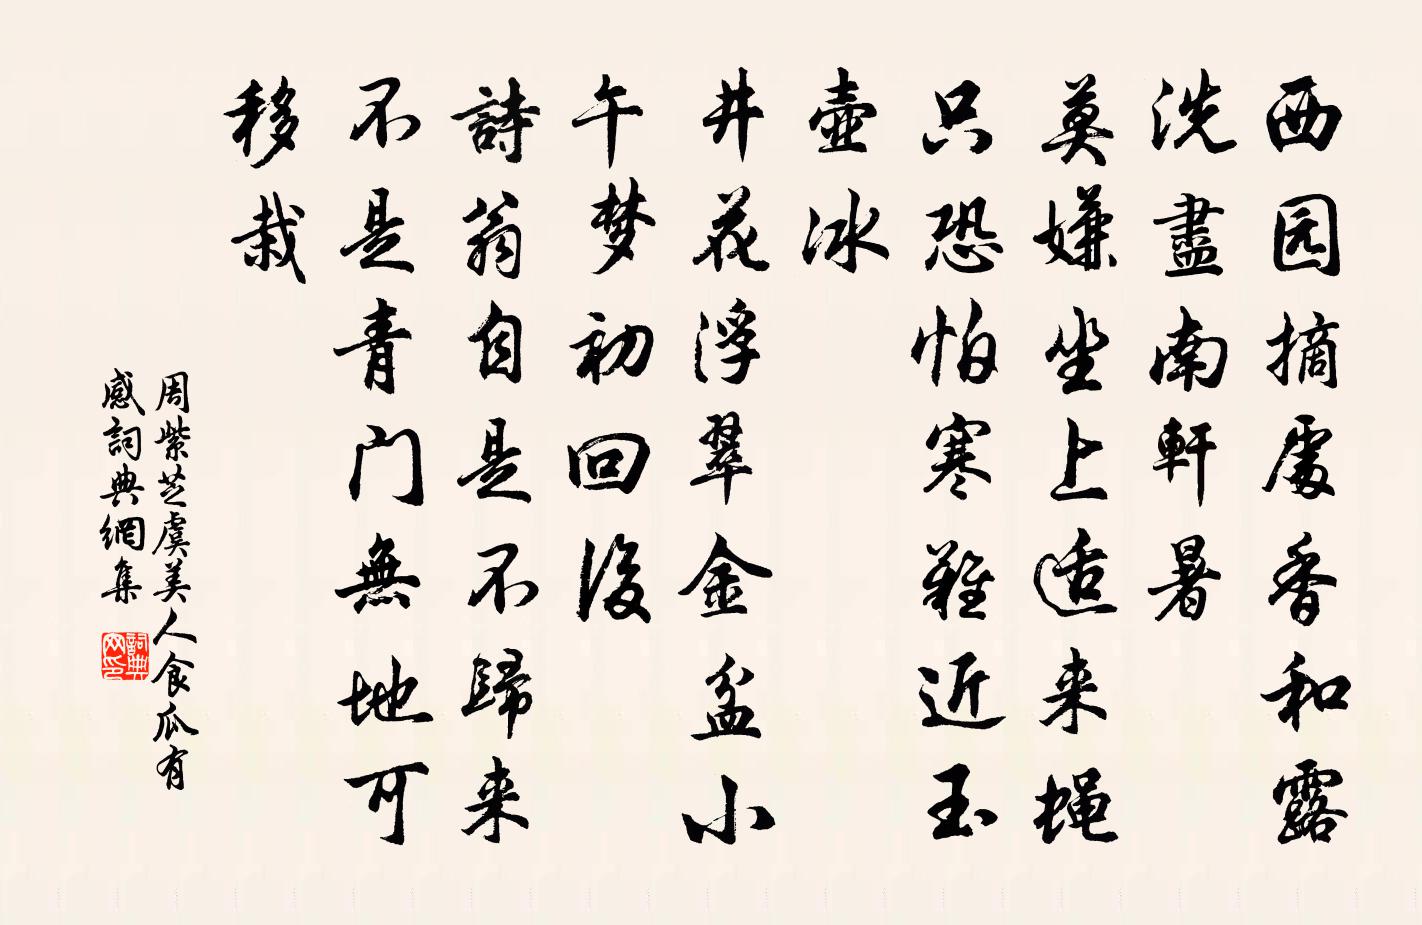 西园摘處香和露
洗盡南軒暑
莫嫌坐上适来蝇
只恐怕寒難近玉
壺冰
井花浮翠金盆小
午梦初回後
詩翁自是不歸来
不是青门無地可
移栽
周紫芝虞美人食瓜有
感詞典網集
詞典网印